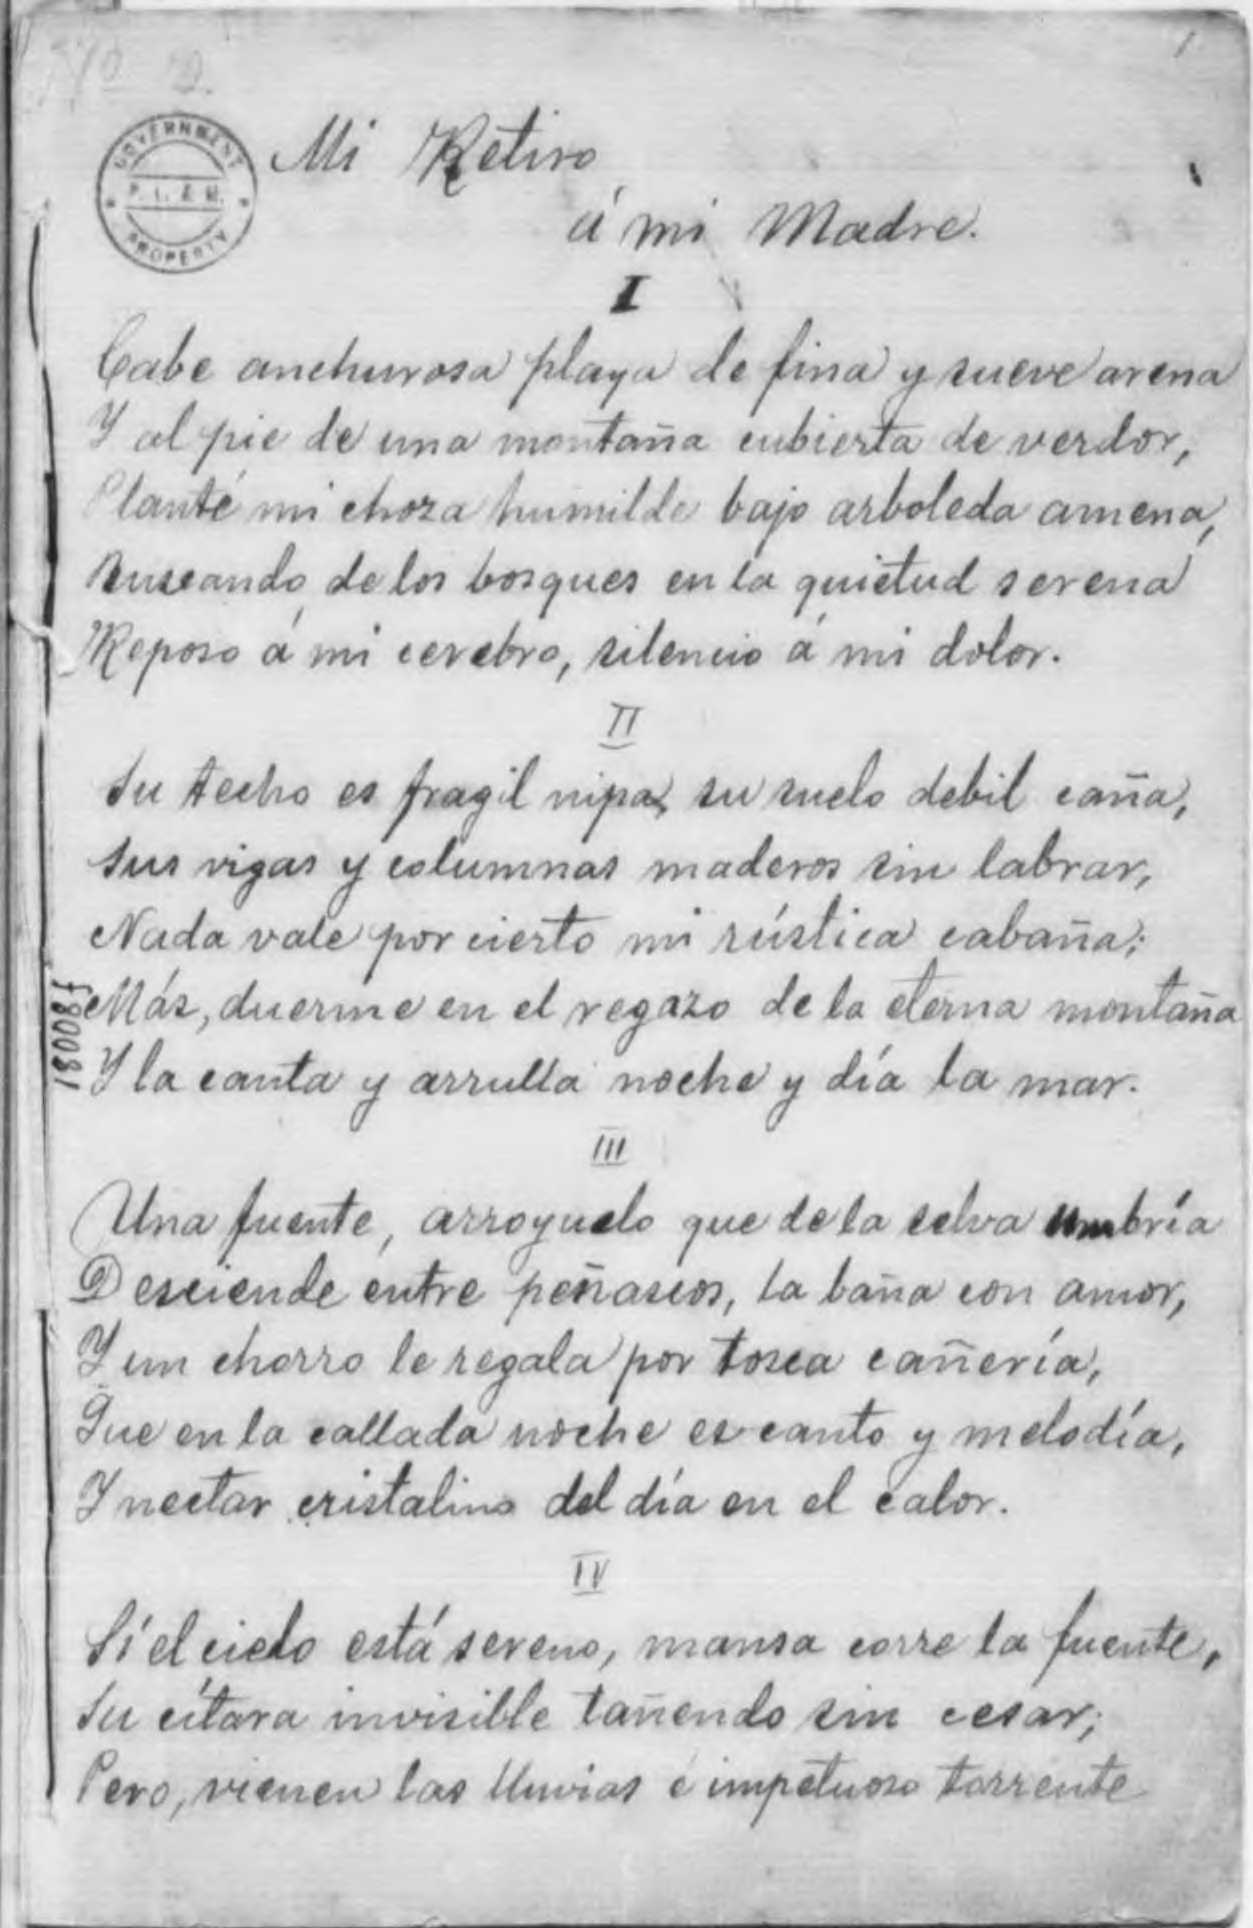 No 2.
1
GOVERNMENT
P. I. & M.
PROPERTY
Mi Retiro
á mi Madre.
I
Cabe anchurosa playa de fina y sueve arena
Y al pie de una montaña cubierta de verdor,
Planté mi choza humilde bajo arboleda amena,
Buscando de los bosques en la quietud serena
Reposo á mi cerebro, silencio á mi dolor.
II
Su techo es fragil nipa, su suelo debil caña,
Sus vigas y columnas maderos sin labrar,
Nada vale por cierto mi rústica cabaña;
Más, duerme en el regazo de la eterna montaña
Y la canta y arrulla noche y día la mar.
18008f
III
Una fuente, arroyuelo que de la selva umbría
Desciende entre peñascos, la baña con amor,
Y un chorro le regala por tosca cañería,
Que en la callada noche es canto y melodía,
Y nectar cristalino del día en el calor.
IV
Sí el cielo está sereno, mansa corre la fuente,
Su cítara invisible tañendo sin cesar;
Pero, vienen las lluvias é impetuoso torrente